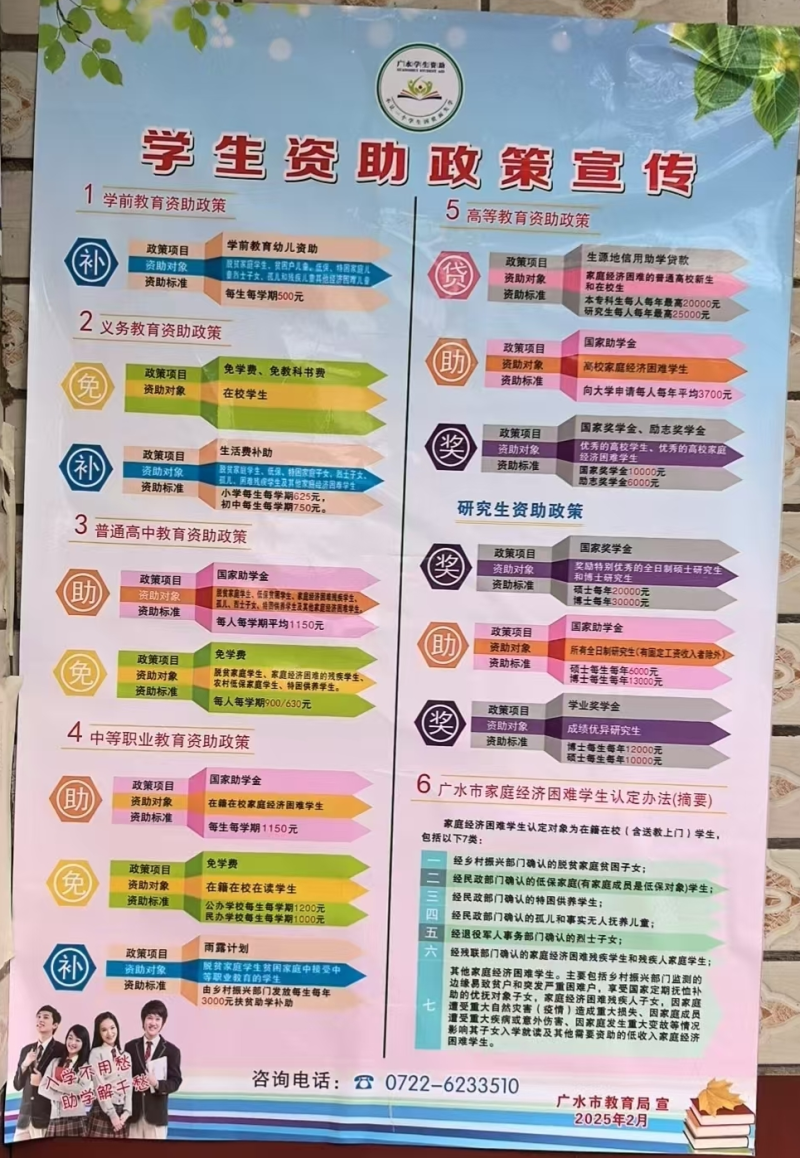 广水学生资助
学生资助政策宣传
1 学前教育资助政策
补
政策项目 学前教育幼儿资助
资助对象
资助标准 每生每学期500元
2 义务教育资助政策
免
政策项目 免学费、免教科书费
资助对象 在校学生
补
政策项目 生活费补助
资助对象 脱贫家庭学生、低保、特困家庭子女、烈士子女、
孤儿、困难残疾学生及其他家庭经济困难学生
资助标准 小学每生每学期625元，
初中每生每学期750元。
3 普通高中教育资助政策
助
政策项目 国家助学金
资助对象
资助标准 每人每学期平均1150元
免
政策项目 免学费
资助对象 脱贫家庭学生、家庭经济困难的残疾学生、
农村低保家庭学生、特困供养学生。
资助标准 每人每学期900/630元
4 中等职业教育资助政策
助
政策项目 国家助学金
资助对象 在籍在校家庭经济困难学生
资助标准 每生每学期1150元
免
政策项目 免学费
资助对象 在籍在校在读学生
资助标准 公办学校每生每学期1200元
民办学校每生每学期1000元
补
政策项目 雨露计划
资助对象 脱贫家庭学生贫困家庭中接受中
等职业教育的学生
资助标准 由乡村振兴部门发放每生每年
3000元扶贫助学补助
5 高等教育资助政策
贷
政策项目 生源地信用助学贷款
资助对象 家庭经济困难的普通高校新生
和在校生
资助标准 本专科生每人每年最高20000元
研究生每人每年最高25000元
助
政策项目 国家助学金
资助对象 高校家庭经济困难学生
资助标准 向大学申请每人每年平均3700元
奖
政策项目 国家奖学金、励志奖学金
资助对象 优秀的高校学生、优秀的高校家庭
经济困难学生
资助标准 国家奖学金10000元
励志奖学金6000元
研究生资助政策
奖
政策项目 国家奖学金
资助对象 奖励特别优秀的全日制硕士研究生
和博士研究生
资助标准 硕士每年20000元
博士每年30000元
助
政策项目 国家助学金
资助对象 所有全日制研究生(有固定工资收入者除外)
资助标准 硕士每生每年6000元
博士每生每年13000元
奖
政策项目 学业奖学金
资助对象 成绩优异研究生
资助标准 博士每生每年12000元
硕士每生每年10000元
6 广水市家庭经济困难学生认定办法(摘要)
家庭经济困难学生认定对象为在籍在校（含送教上门）学生，
包括以下7类：
一 经乡村振兴部门确认的脱贫家庭贫困子女；
二 经民政部门确认的低保家庭(有家庭成员是低保对象)学生；
三 经民政部门确认的特困供养学生；
四 经民政部门确认的孤儿和事实无人抚养儿童；
五 经退役军人事务部门确认的烈士子女；
六 经残联部门确认的家庭经济困难残疾学生和残疾人家庭学生；
七 其他家庭经济困难学生。主要包括乡村振兴部门监测的
边缘易致贫户和突发严重困难户，享受国家定期抚恤补
助的优抚对象子女，家庭经济困难残疾人子女，因家庭
遭受重大自然灾害（疫情）造成重大损失、因家庭成员
遭受重大疾病或意外伤害、因家庭发生重大变故等情况
影响其子女入学就读及其他需要资助的低收入家庭经济
困难学生。
入学不用愁
助学解千愁
咨询电话：☎ 0722-6233510
广水市教育局 宣
2025年2月